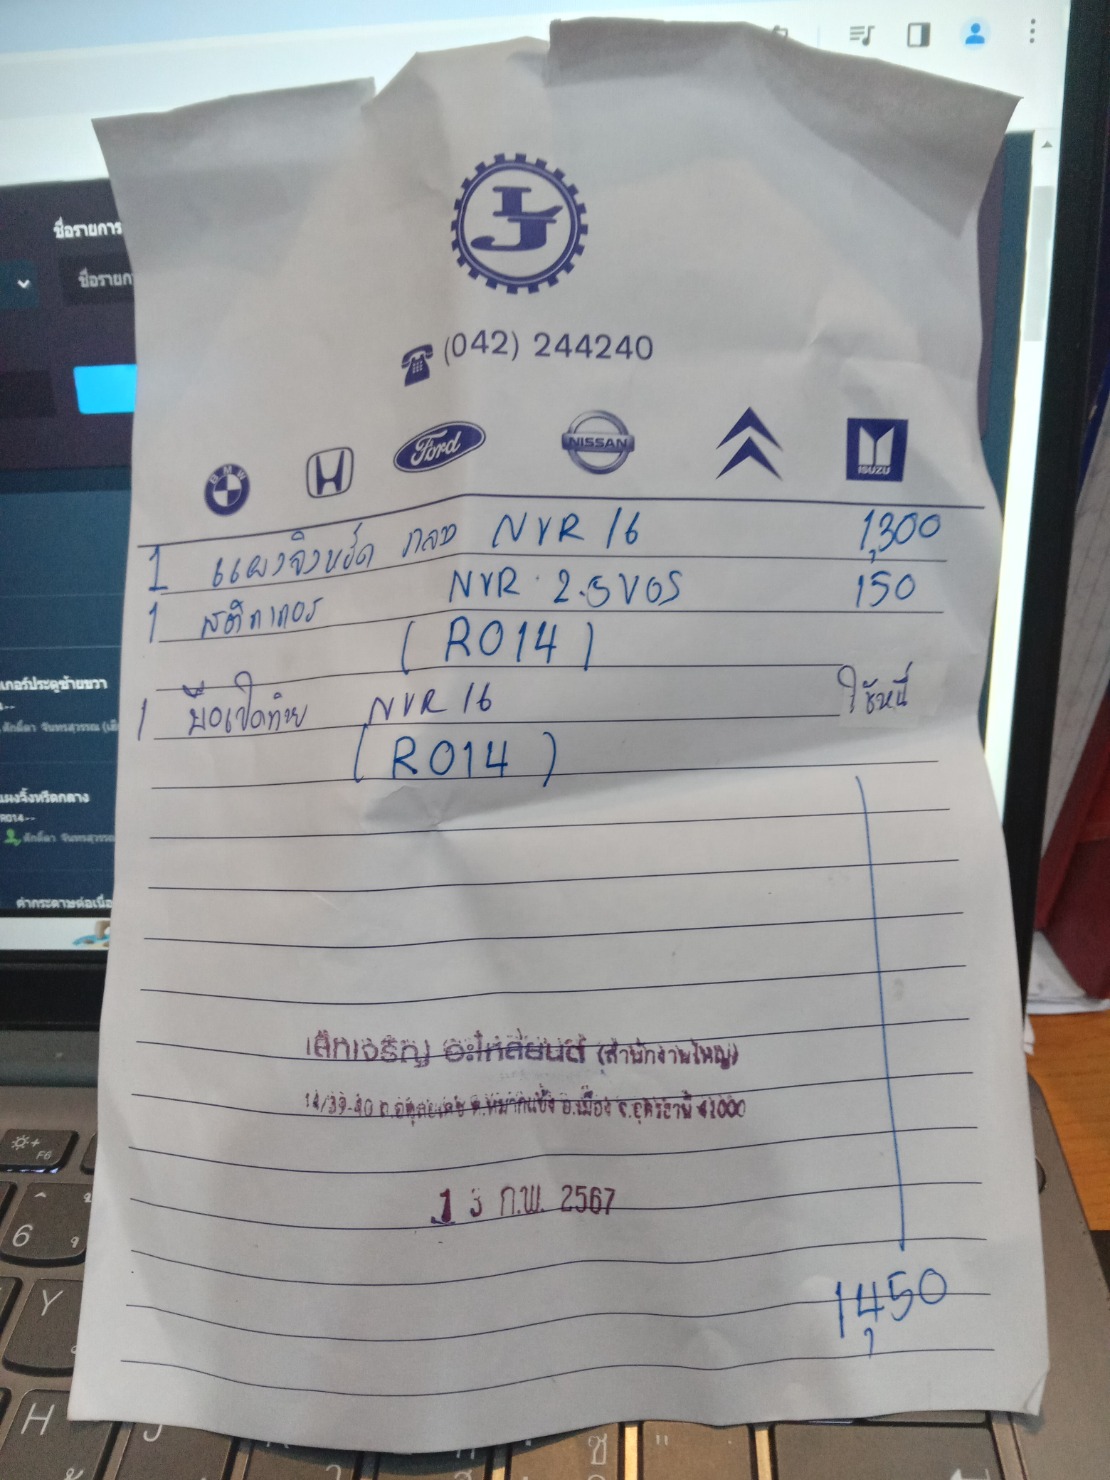 ชื่อรายการ
ชื่อรายก
LJ
(042) 244240
BMW
Ford
NISSAN
ISUZU
1 แผงจิ้งหรีด กลาง NVR 16 1,300
1 สติกเกอร์ NVR 2.5VGS 150
(R014)
1 มือเปิดท้าย NVR 16 ใช้หนี้
(R014)
กอร์ประตูซ้ายขวา
แผงจิ้งหรีดกลาง
R014--
ค่ากระดาษต่อเนื่อ
เล็กเจริญ อะไหล่ยนต์ (สำนักงานใหญ่)
14/39-40 ถ.อดุลยเดช ต.หมากแข้ง อ.เมือง จ.อุดรธานี 41000
13 ก.พ. 2567
1,450
F6
6
Y
H
J